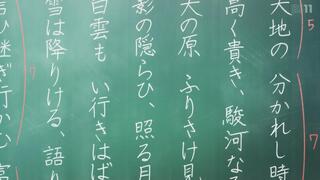 天地の 分かれし時
高く貴き、駿河な
天の原 ふりさけ見
影の隠らひ、照る月
白雲も い行きはば
雪は降りける、語り
言ひ継ぎ行かむ 富
5
7
7
11